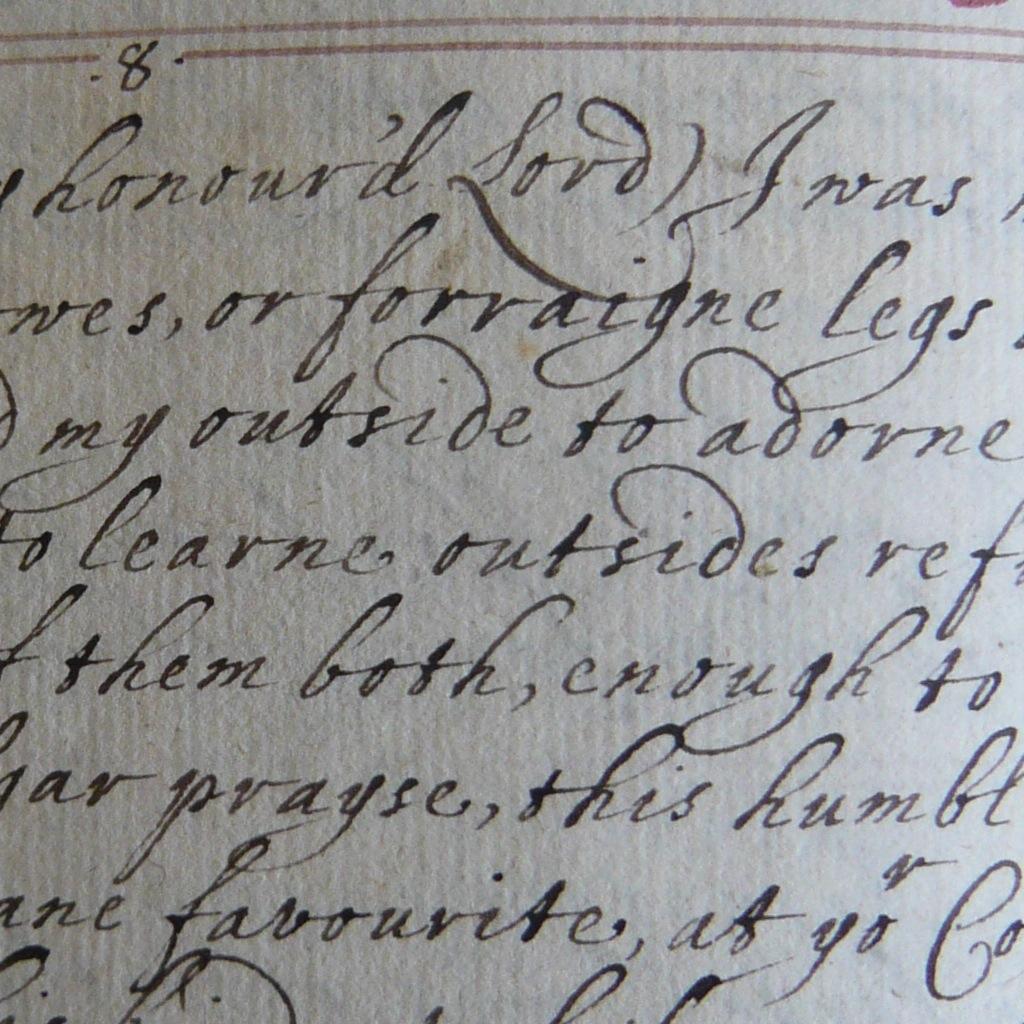 .8.
honour'd Lord) I was
wes, or forraigne legs
my outside to adorne
to learne outsides ref
them both, enough to
gar prayse, this humbl
ane favourite, at yor Co